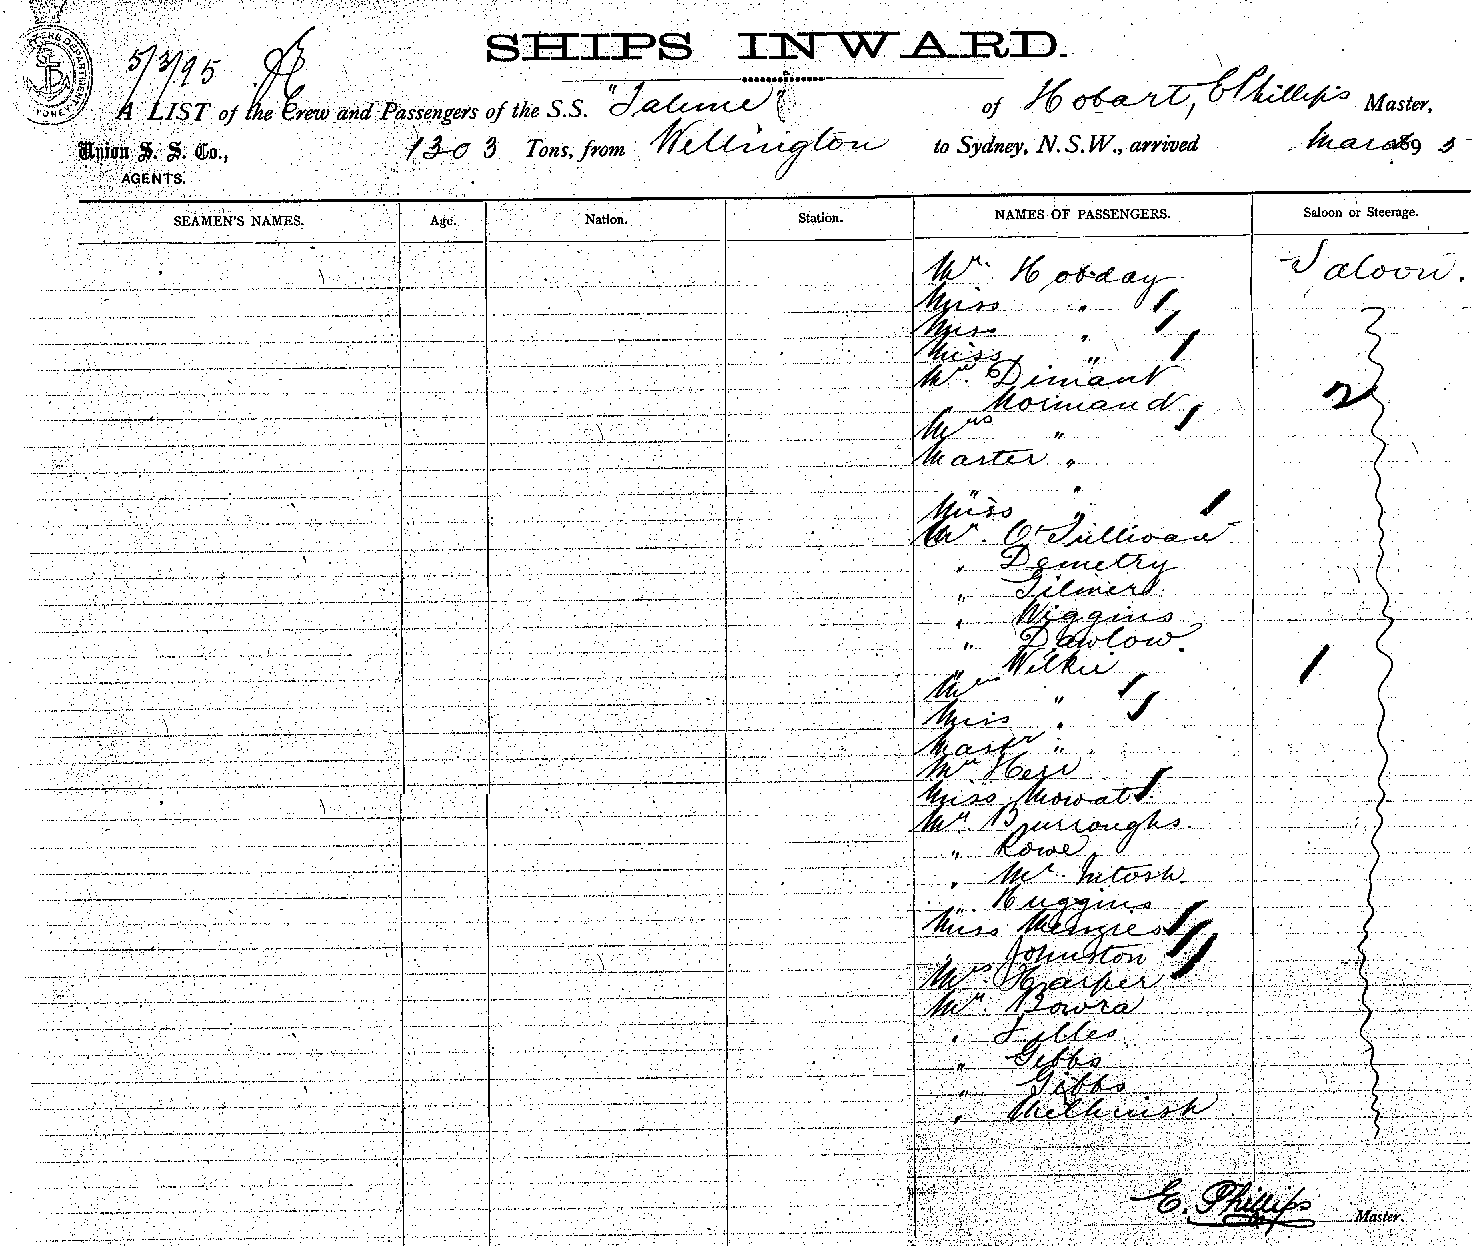 5/3/95
SHIPS INWARD.
A LIST of the Crew and Passengers of the S.S. "Talune" of Hobart, E Phillips Master,
Union S. S. Co., 1303 Tons, from Wellington to Sydney, N.S.W., arrived Mar 1895
AGENTS.
SEAMEN'S NAMES. Age. Nation. Station. NAMES OF PASSENGERS. Saloon or Steerage.
Mr. Hobday Saloon.
Miss "
Miss "
Miss "
Mr. Dimant
Normand 2
Mrs "
Master "
" "
Miss "
Mr. O'Sullivan
" Demetry
" Gilmer
" Wiggins
" Dawlow.
" Wilkie
Mrs "
Miss "
Mastr "
Mr Kerr
Miss Mowat
Mr. Burroughs.
" Rowe
" Mc Intosh
" Huggins
Miss Menzies
" Johnston
Mrs Harper
Mr. Bowra
"
" Gibbs
" Gibbs
" Mellhuish
E. Phillips Master.